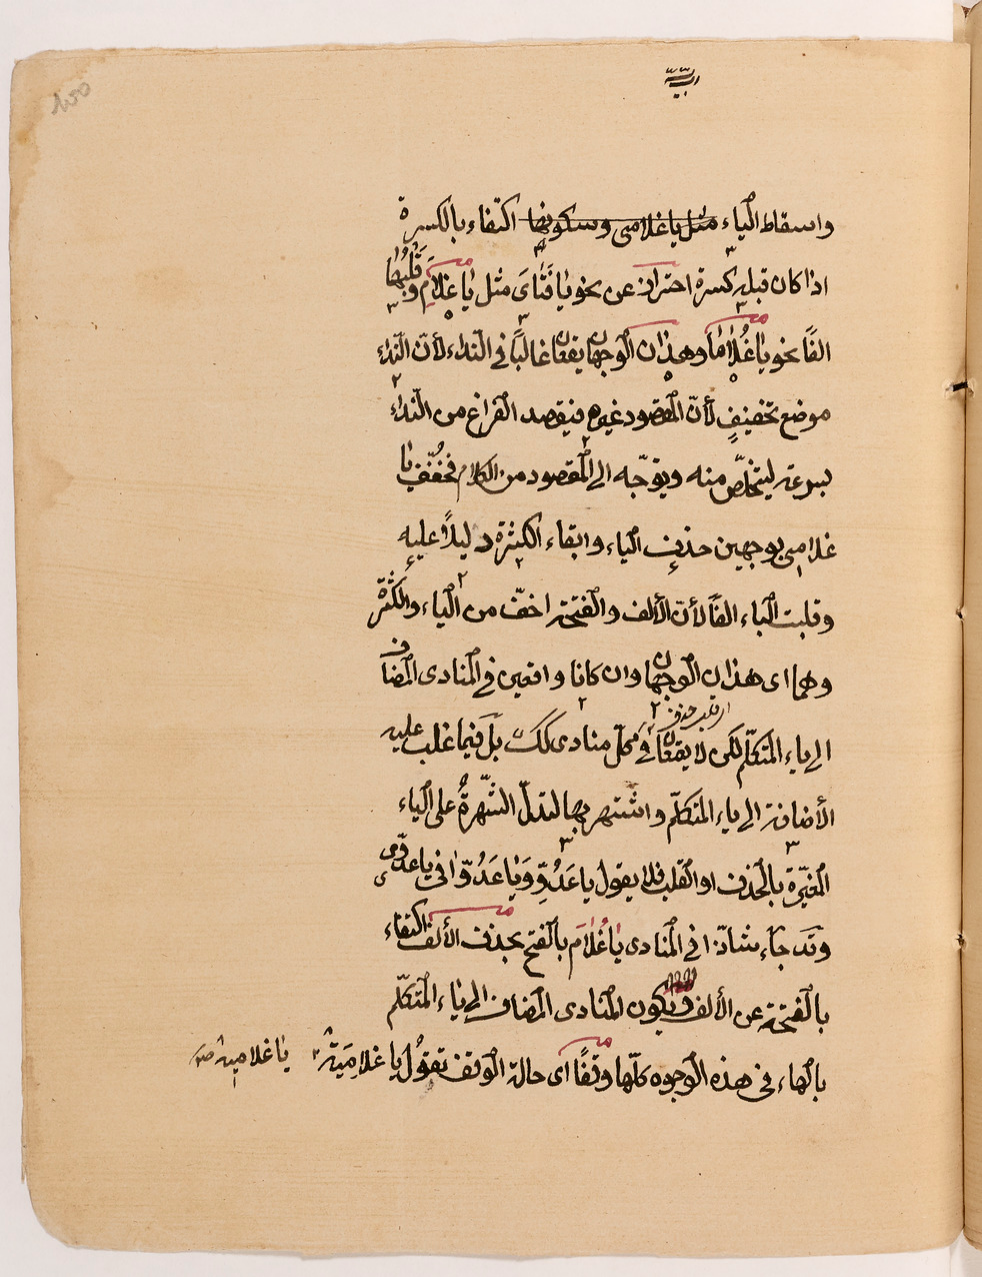 واسقاط الياء مثل يا غلامى وسكونها اكتفاء بالكسرة
اذا كان قبله كسرة احتراز عن نحو يا فَتَاىَ مثل يا غلامِ وقَلْبُها
الفًا نحو يا غُلَاماَ وهذان الوجهان يقعان غالبًا في النداء لأنّ النداء
موضع تخفيفٍ لأنّ المقصود غيره فيقصد الفراغ من النداء
بسرعة ليتخلّص منه ويتوجّه الى المقصود من الكلام فخُفّف يا
غلامى بوجهين حذفِ الياء وابقاء الكسرة دليلاً عليه
وقلبت الياء الفًا لأنّ الألف والفتحة اخفّ من الياء والكسرة
وهما اى هذان الوجهان وان كانا واقعين في المنادى المضاف
الى ياء المتكلّم لكن لا يقعان في كلّ منادى كك بل فيما غلب عليه
الأضافة الى ياء المتكلّم واشتهر بها لتدلّ الشّهرةُ على الياء
المغيّرة بالحذف او القلب فلا يقول يا عَدُوِّ وَيا عَدُوّا في يا عدوّى
وقد جاء شاذّا في المنادى يا غُلامَ بالفتح بحذف الألف اكتفاء
بالفتحة عن الألف ويكون المنادى المضاف الى ياء المتكلّم
بالهاء في هذه الوجوه كلّها وقفًا اى حالة الوقف تقول يا غلامِيَهْ
يا غلاميه صح